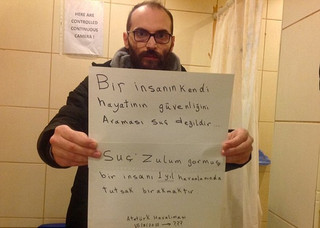 HERE ARE
CONTROLLED
CONTINUOUS
CAMERA !
Bir insanın kendi
hayatının güvenliğini
Araması suç değildir...
"Suç" Zulum görmüş
bir insanı 1 yıl havaalanında
tutsak bırakmaktır
Atatürk Havalimanı